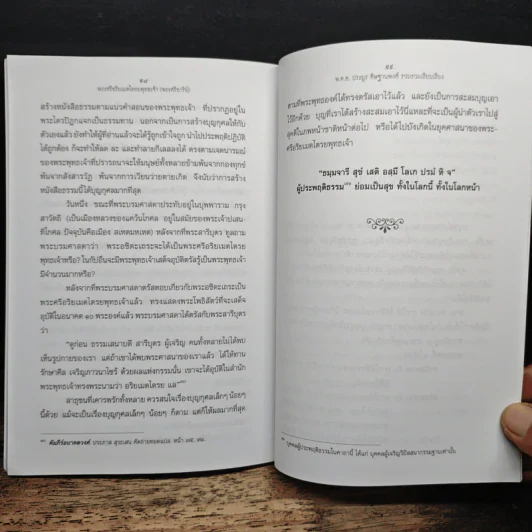 ๑๘
พระศรีอริยเมตไตรยพุทธเจ้า (พระศรีอารีย์)
สร้างหนังสือธรรมตามแนวคำสอนของพระพุทธเจ้า ที่ปรากฏอยู่ใน
พระไตรปิฎกแจกเป็นธรรมทาน นอกจากเป็นการสร้างบุญกุศลให้กับ
ตัวเองแล้ว ยังทำให้ผู้ที่อ่านแล้วจะได้รู้ถูกเข้าใจถูก นำไปประพฤติปฏิบัติ
ได้ถูกต้อง ก็จะทำให้ลด ละ และทำลายกิเลสลงได้ ตรงตามเจตนารมณ์
ของพระพุทธเจ้าที่ปรารถนาจะให้มนุษย์ทั้งหลายข้ามพ้นจากกองทุกข์
พ้นจากสังสารวัฏ พ้นจากการเวียนว่ายตายเกิด จึงนับว่าการสร้าง
หนังสือธรรมนี้ได้บุญกุศลมากที่สุด
วันหนึ่ง ขณะที่พระบรมศาสดาประทับอยู่ในบุพพาราม กรุง
สาวัตถี (เป็นเมืองหลวงของแคว้นโกศล อยู่ในสมัยของพระเจ้าปเสน-
ทิโกศล ปัจจุบันคือเมือง สเหตมเหต) หลังจากที่พระสารีบุตร ทูลถาม
พระบรมศาสดาว่า พระอชิตะเถระจะได้เป็นพระศรีอริยเมตไตรย
พุทธเจ้าหรือ? ในกัปอื่นจะมีพระพุทธเจ้าเสด็จอุบัติตรัสรู้เป็นพระพุทธเจ้า
มีจำนวนมากหรือ?
หลังจากที่พระบรมศาสดาได้ตรัสตอบเกี่ยวกับพระอชิตะเถระจะเป็น
พระศรีอริยเมตไตรยพุทธเจ้าแล้ว ทรงแสดงพระโพธิสัตว์ที่จะเสด็จ
อุบัติในอนาคต ๑๐ พระองค์แล้ว พระบรมศาสดาได้ตรัสกับพระสารีบุตร
ว่า
"ดูก่อน ธรรมเสนาบดี สารีบุตร ผู้เจริญ คนทั้งหลายไม่ได้พบ
เห็นรูปกายของเรา แต่ถ้าเขาได้พบพระศาสนาของเราแล้ว ได้ให้ทาน
รักษาศีล เจริญภาวนาไซร้ ด้วยผลแห่งกรรมนั้น เขาจะได้อุบัติในสำนัก
พระพุทธเจ้าทรงพระนามว่า อริยเมตไตรย แล"
สาธุชนที่เคารพรักทั้งหลาย ควรสนใจเรื่องบุญกุศลเล็กๆ น้อยๆ
นี้ด้วย แม้จะเป็นเรื่องบุญกุศลเล็กๆ น้อยๆ ก็ตาม แต่ก็ให้ผลมากที่สุด
คัมภีร์อนาคตวงศ์ ประภาส สุระเสน คัดถ่ายทอดแปล หน้า
๑๙
พ.ต.ธ. ประยูร
ตามที่พระพุทธองค์ได้ทรงตรัสเอาไว้แล้ว และยังเป็นการสะสมบุญเอา
ไว้อีกด้วย บุญที่เราได้สร้างสะสมเอาไว้นี่แหละที่จะเป็นผู้นำตัวเราไปสู่
สุคติในภพหน้าชาติหน้าต่อไป หรือได้ไปบังเกิดในยุคศาสนาของพระ-
ศรีอริยเมตไตรยพุทธเจ้า
"ธมฺมจารี สุขํ เสติ อสฺมึ โลเก ปรมฺ หิ จ"
ผู้ประพฤติธรรม ย่อมเป็นสุข ทั้งในโลกนี้ ทั้งในโลกหน้า
บุคคลผู้ประพฤติธรรมในคาถานี้ ได้แก่ บุคคลผู้เจริญวิปัสสนากรรมฐานเท่านั้น